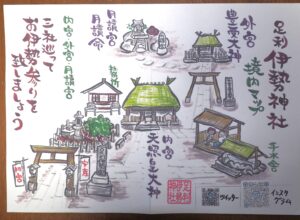 足利伊勢神社
境内マップ
外宮
豊受大神
月讀宮
月讀命
内宮 外宮 月讀宮
三社巡って
お伊勢参りを
致しましょう
手水舎
内宮
天照皇大神
ツイッター
インスタ
グラム